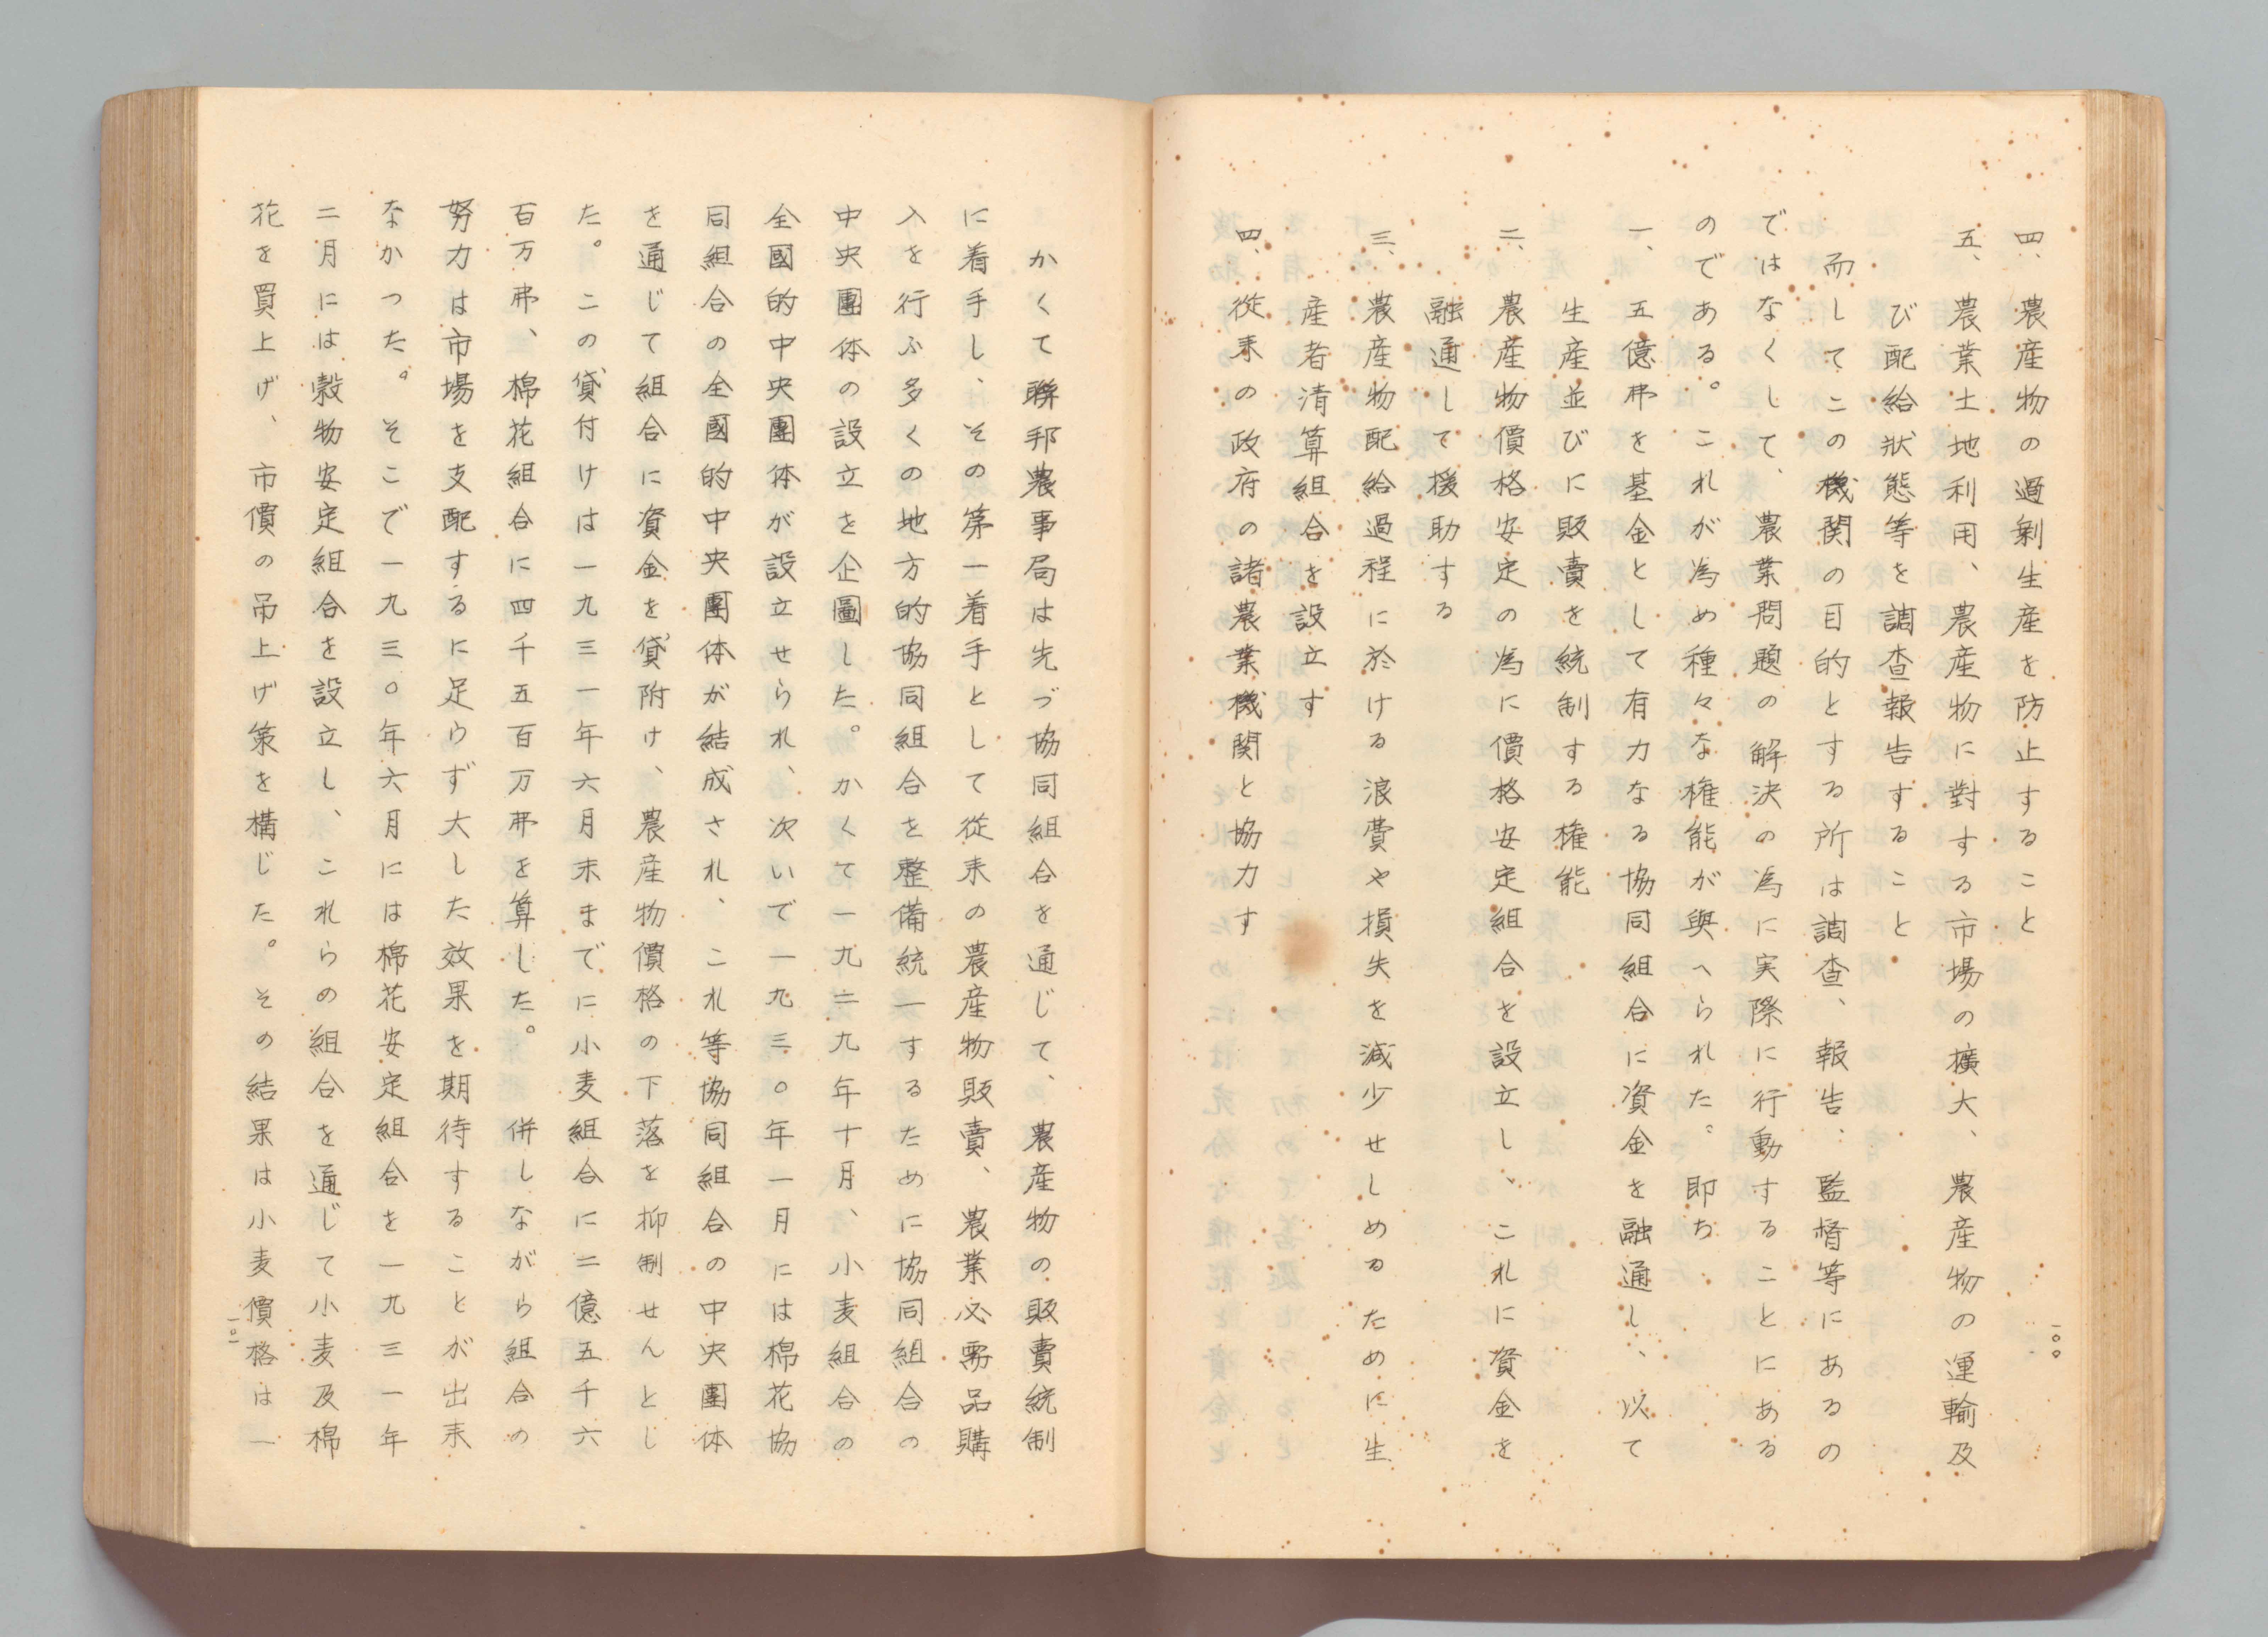 四、農産物の過剰生産を防止すること
五、農業土地利用、農産物に對する市場の擴大、農産物の運輸及
び配給狀態等を調査報告すること
而してこの機関の目的とする所は調査、報告、監督等にあるの
ではなくして、農業問題の解決の爲に実際に行動することにある
のである。これが爲め種々な権能が與へられた。即ち
一、五億弗を基金として有力なる協同組合に資金を融通し、以て
生産並びに販賣を統制する権能
二、農産物價格安定の爲に價格安定組合を設立し、これに資金を
融通して援助する
三、農産物配給過程に於ける浪費や損失を減少せしめるために生
産者清算組合を設立す
四、從来の政府の諸農業機関と協力す
一〇〇
かくて聯邦農事局は先づ協同組合を通じて、農産物の販賣統制
に着手し、その第一着手として從来の農産物販賣、農業必需品購
入を行ふ多くの地方的協同組合を整備統一するために協同組合の
中央團体の設立を企圖した。かくて一九二九年十月、小麦組合の
全國的中央團体が設立せられ、次いで一九三〇年一月には棉花協
同組合の全國的中央團体が結成され、これ等協同組合の中央團体
を通じて組合に資金を貸附け、農産物價格の下落を抑制せんとし
た。この貸付けは一九三一年六月末までに小麦組合に二億五千六
百万弗、棉花組合に四千五百万弗を算した。併しながら組合の
努力は市場を支配するに足らず大した效果を期待することが出来
なかつた。そこで一九三〇年六月には棉花安定組合を一九三一年
二月には穀物安定組合を設立し、これらの組合を通じて小麦及棉
花を買上げ、市價の吊上げ策を構じた。その結果は小麦價格は一
一〇一